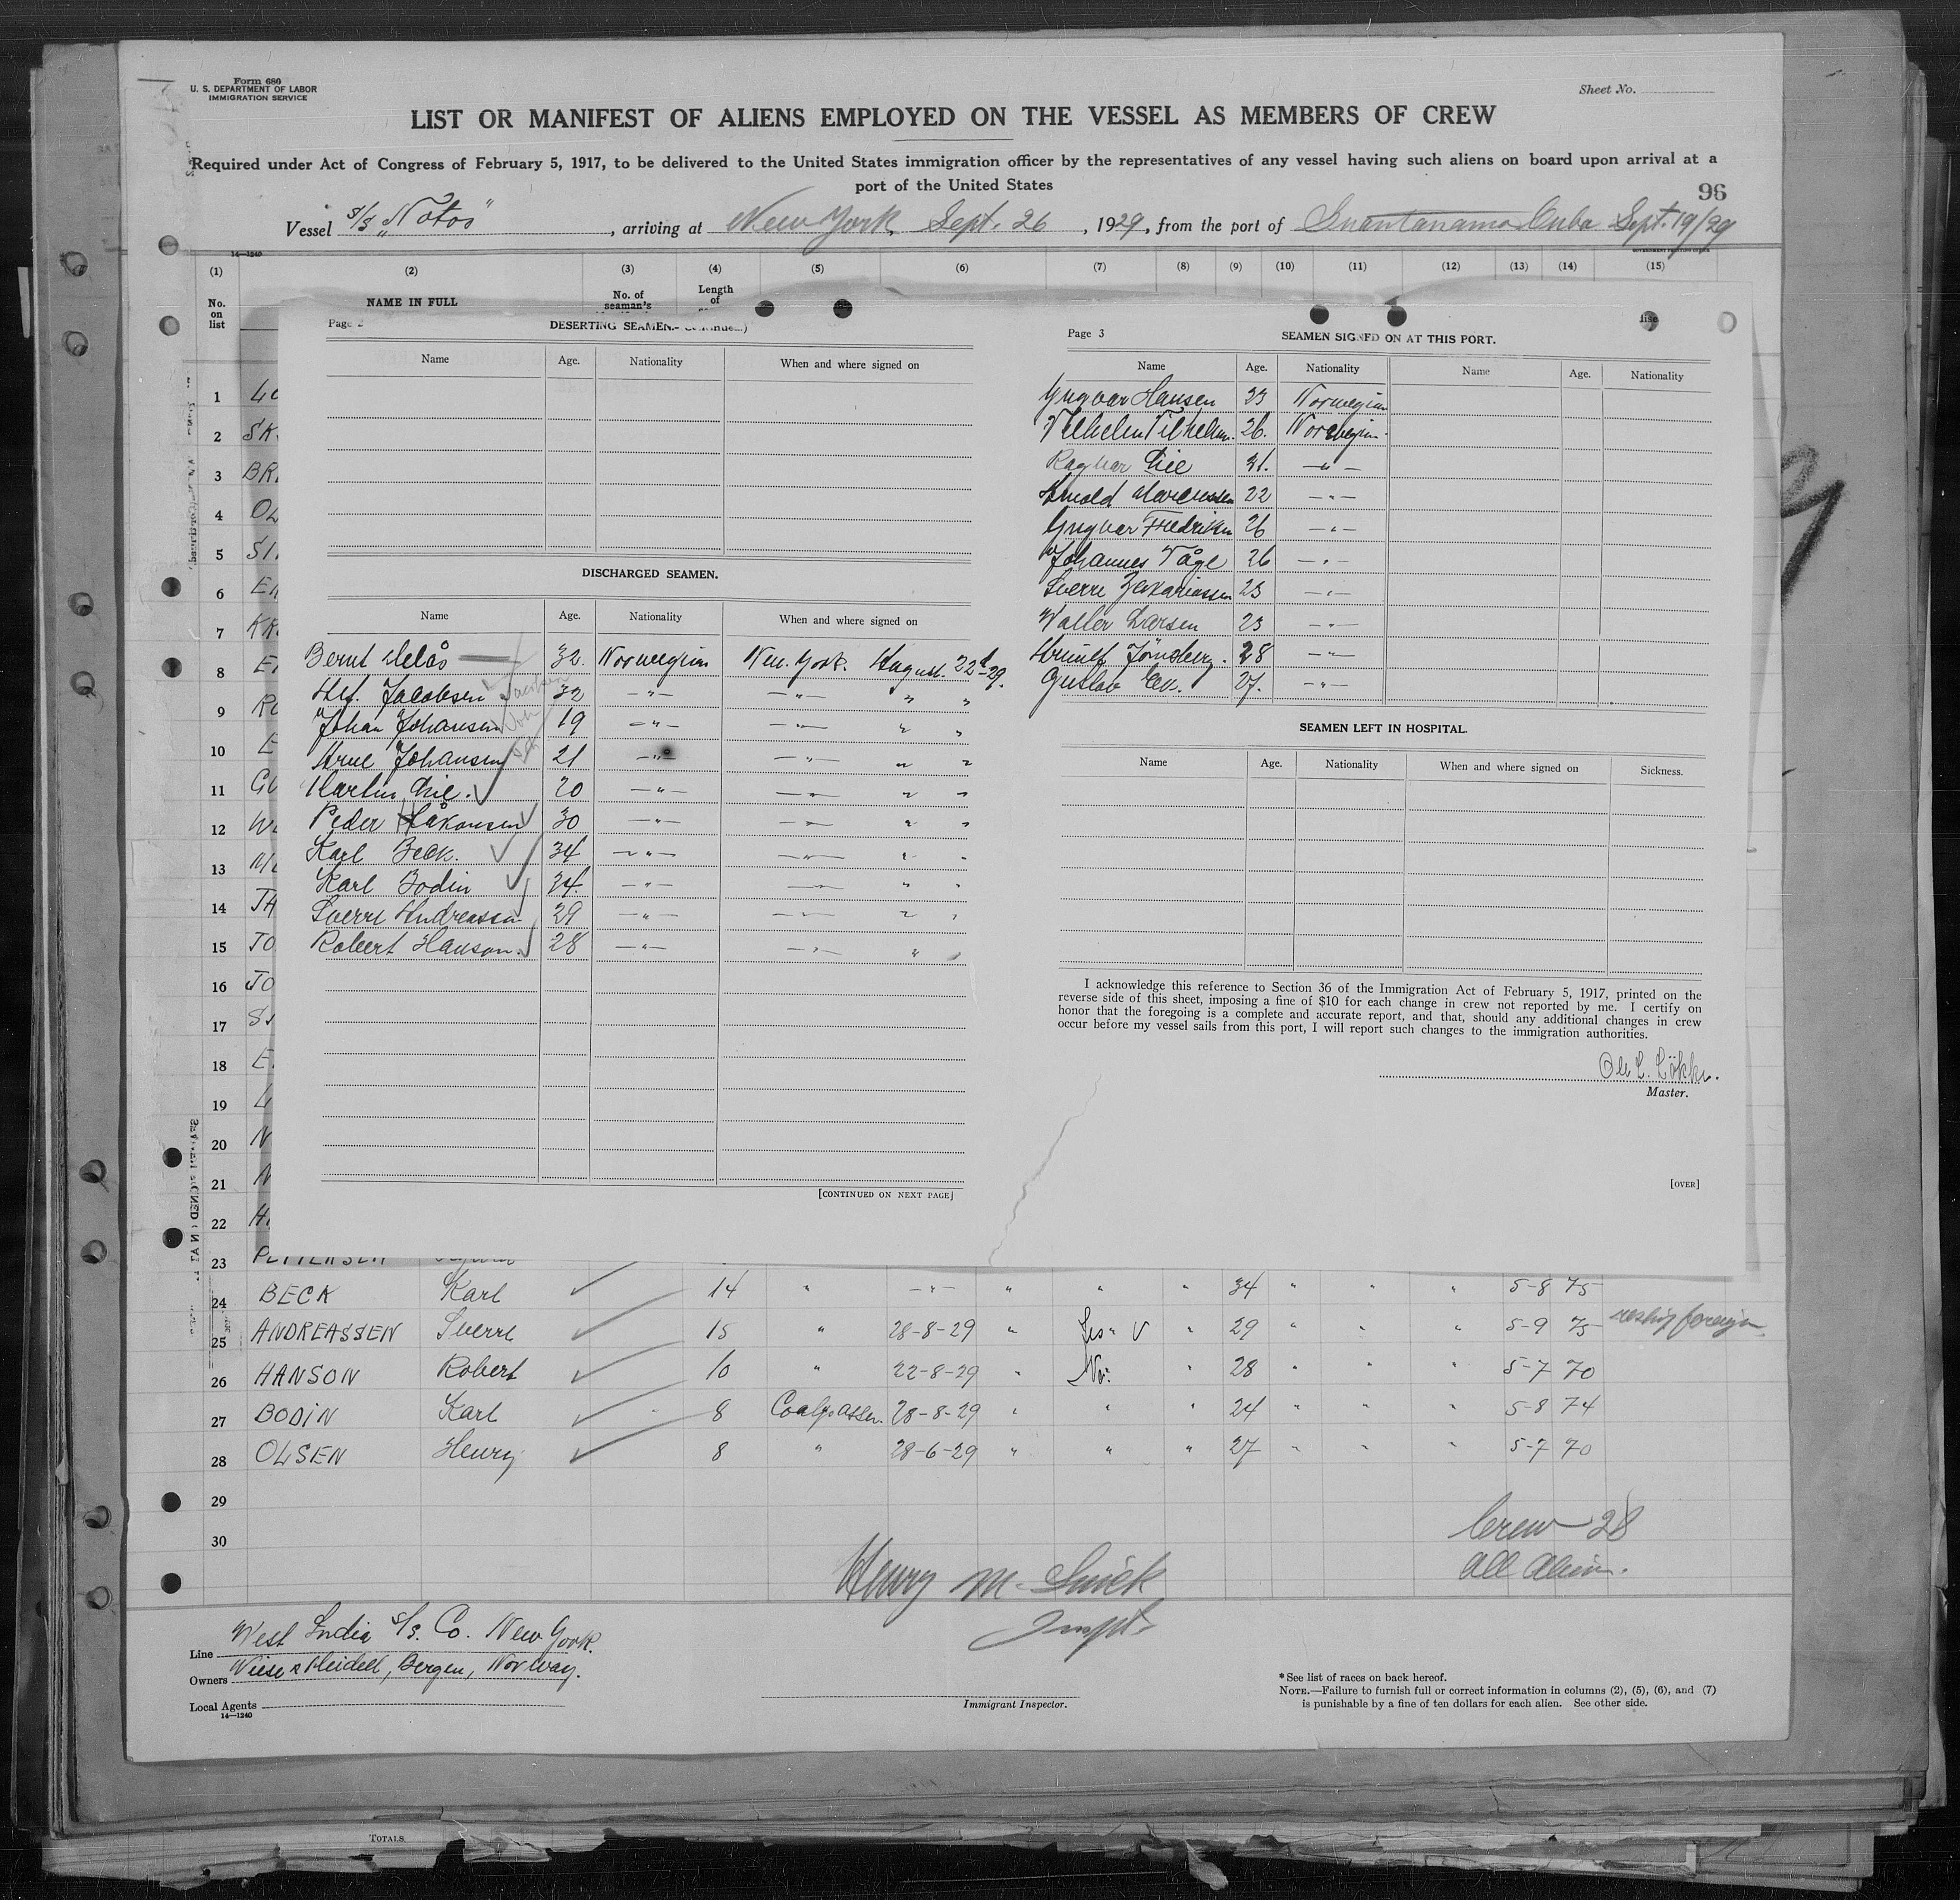 Form 686
U. S. DEPARTMENT OF LABOR
IMMIGRATION SERVICE
Sheet No.
LIST OR MANIFEST OF ALIENS EMPLOYED ON THE VESSEL AS MEMBERS OF CREW
Required under Act of Congress of February 5, 1917, to be delivered to the United States immigration officer by the representatives of any vessel having such aliens on board upon arrival at a
port of the United States
96
Vessel S/S „Notos" , arriving at New York, Sept. 26 , 1929, from the port of Guantanamo Cuba Sept. 19/29
14—1240
(1) (2) (3) (4) (5) (6) (7) (8) (9) (10) (11) (12) (13) (14) (15)
No. on list
NAME IN FULL
No. of seaman's
Length of
Page 2
DESERTING SEAMEN.
Name Age. Nationality When and where signed on
DISCHARGED SEAMEN.
Name Age. Nationality When and where signed on
Bernt Melås 32. Norwegian New York. August. 22d-29.
Alf. Jacobsen 32 —"— —"— " "
Johan Johansen 19 —"— —"— " "
Arne Johansen 21 —"— —"— " "
Martin Lie. 20 —"— —"— " "
Peder Håkonsen 30 —"— —"— " "
Karl Beck. 34 —"— —"— " "
Karl Bodin 24. —"— —"— " "
Sverre Andreassen 29 —"— —"— " "
Robert Hanson. 28 —"— —"— "
[CONTINUED ON NEXT PAGE]
Page 3
SEAMEN SIGNED ON AT THIS PORT.
Name Age. Nationality Name Age. Nationality
Yngvar Hansen 23 Norwegian
Vilhelm 26. Norwegian.
Ragnar Lie 31. —"—
Arnold Marcussen 22 —"—
Yngvar Fredriksen 26 —"—
Johannes Våge 26 —"—
Sverre Zakariassen 23 —"—
Walter Larsen 23 —"—
Tönsberg. 28 —"—
Gustav Ek. 27. —"—
SEAMEN LEFT IN HOSPITAL.
Name Age. Nationality When and where signed on Sickness.
I acknowledge this reference to Section 36 of the Immigration Act of February 5, 1917, printed on the
reverse side of this sheet, imposing a fine of $10 for each change in crew not reported by me. I certify on
honor that the foregoing is a complete and accurate report, and that, should any additional changes in crew
occur before my vessel sails from this port, I will report such changes to the immigration authorities.
Master.
[OVER]
1
2
3
4
5
6
7
8
9
10
11
12
13
14
15
16
17
18
19
20
21
22
23 PETTERSEN
24 BECK Karl 14 " —"— " " " 34 " " " 5-8 75
25 ANDREASSEN Sverre 15 " 28-8-29 " " 29 " " " 5-9 75 reship foreign
26 HANSON Robert 10 " 22-8-29 " No: " 28 " " " 5-7 70
27 BODIN Karl 8 Coalpasser. 28-8-29 " " " 24 " " " 5-8 74
28 OLSEN Henry 8 " 28-6-29 " " " 27 " " " 5-7 70
29
30
Crew 28
All Aliens.
Henry M. Smick
Inspt.
Line West India S/S. Co. New York.
Owners Wiese & Meidell, Bergen, Norway.
Local Agents
14—1240
Immigrant Inspector.
* See list of races on back hereof.
NOTE.—Failure to furnish full or correct information in columns (2), (5), (6), and (7)
is punishable by a fine of ten dollars for each alien. See other side.
TOTALS.